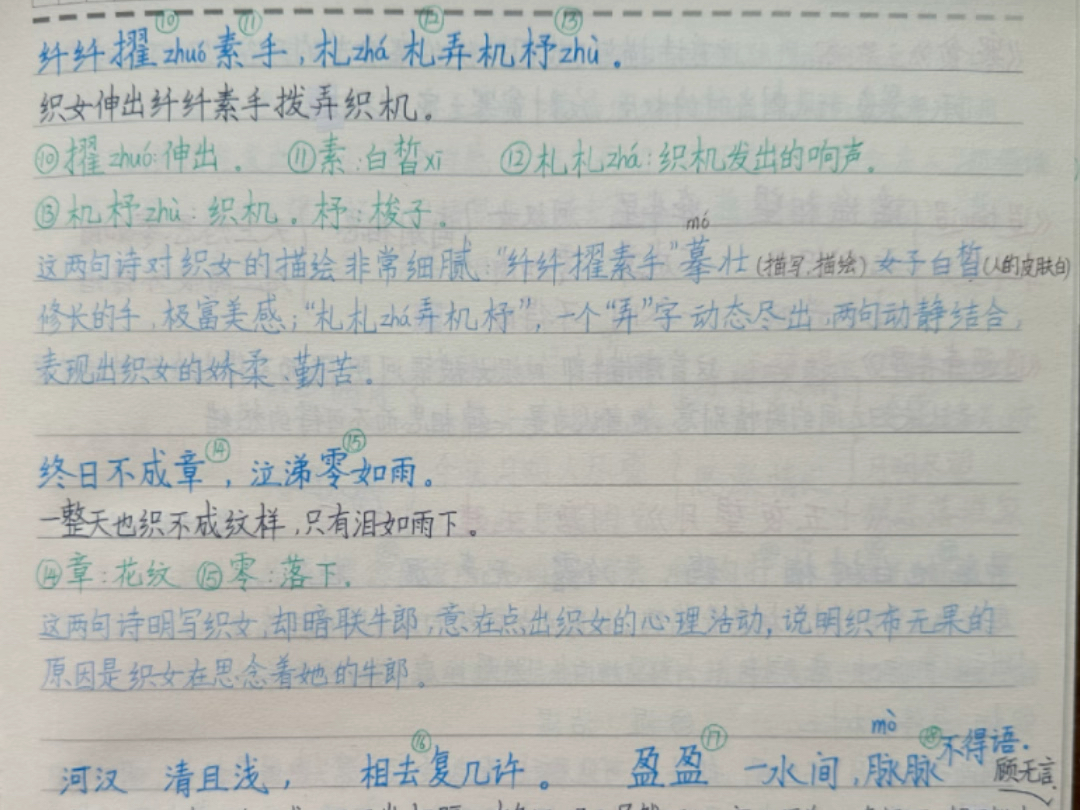 纤纤擢zhuó⑩素⑪手,札zhá札⑫弄机杼zhù⑬。
织女伸出纤纤素手拨弄织机。
⑩擢zhuó:伸出. ⑪素:白皙xī ⑫札札zhá:织机发出的响声.
⑬机杼zhù:织机.杼:梭子.
这两句诗对织女的描绘非常细腻:“纤纤擢素手”摹mó壮(描写.描绘)女子白皙(人的皮肤白)
修长的手,极富美感;“札札zhá弄机杼”,一个“弄”字动态尽出,两句动静结合,
表现出织女的娇柔、勤苦.
终日不成章⑭,泣涕零⑮如雨。
一整天也织不成纹样,只有泪如雨下。
⑭章:花纹 ⑮零:落下.
这两句诗明写织女,却暗联牛郎,意在点出织女的心理活动,说明织布无果的
原因是织女在思念着她的牛郎。
河汉清且浅,相去⑯复几许。盈盈⑰一水间,脉mò脉⑱不得语.
顾无言